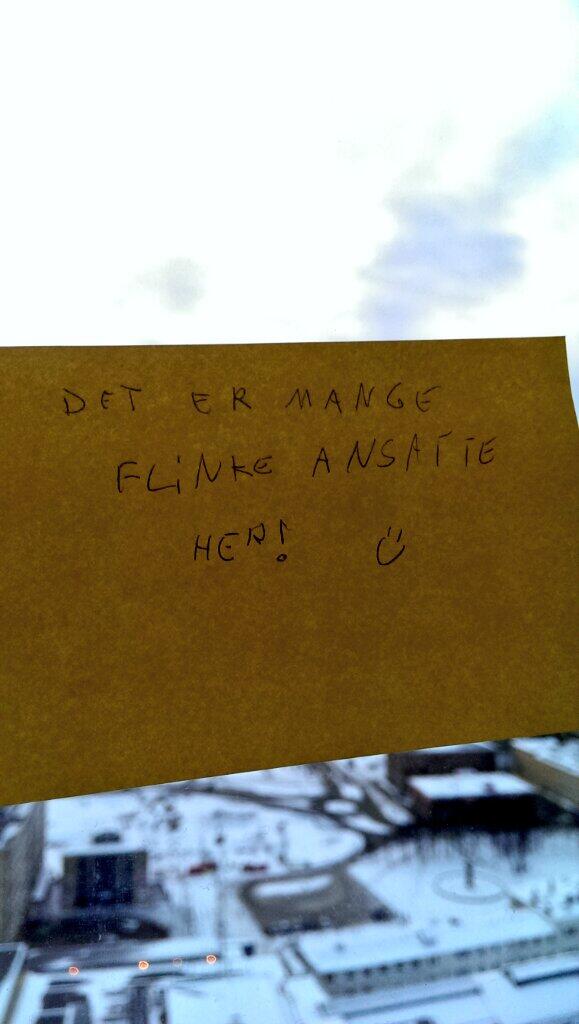 DET ER MANGE
FLiNKE ANSATTE
HER! ☺